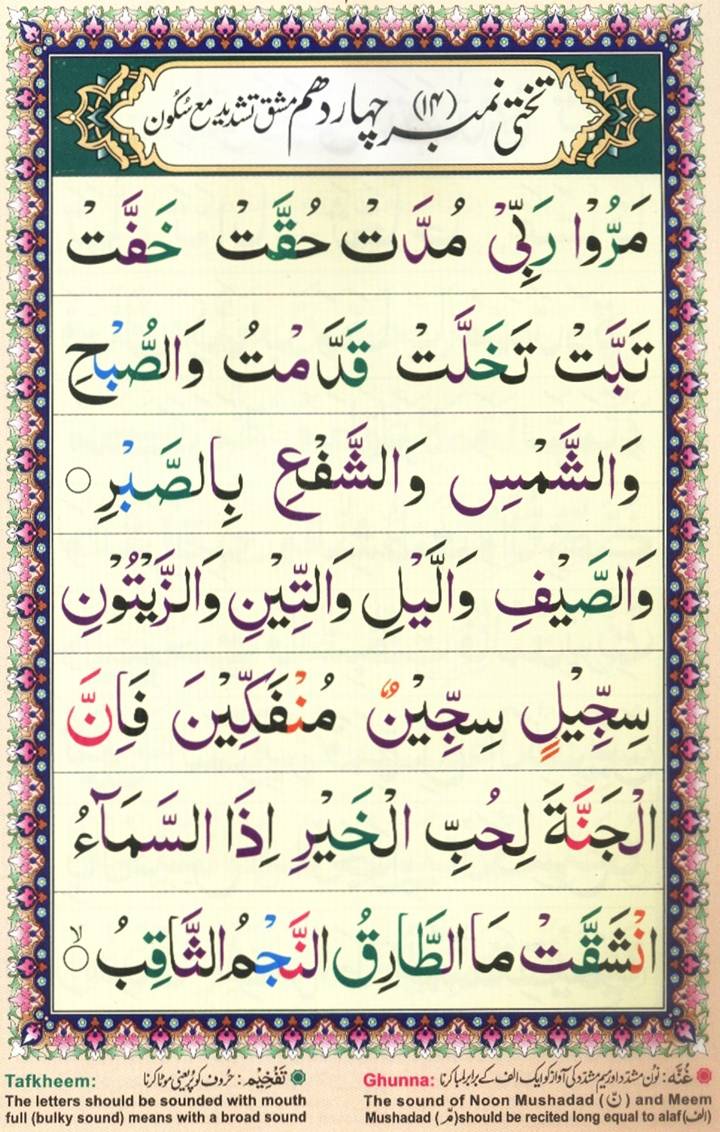 تختی نمبر (۱۴) چہاردھم مشق تشدید مع سکون
مَرُّوْا رَبِّیْ مُدَّتْ حُقَّتْ خَفَّتْ
تَبَّتْ تَخَلَّتْ قَدَّمْتُ وَالصُّبْحِ
وَالشَّمْسِ وَالشَّفْعِ بِالصَّبْرِ ○
وَالصَّیْفِ وَالَّیْلِ وَالتِّیْنِ وَالزَّیْتُوْنِ
سِجِّیْلٍ سِجِّیْنٌ مُنْفَكِّیْنَ فَاِنَّ
الْجَنَّةَ لِحُبِّ الْخَیْرِ اِذَا السَّمَآءُ
انْشَقَّتْ مَا الطَّارِقُ النَّجْمُ الثَّاقِبُ ○ۙ
Tafkheem: تَفْخِیْم: حروف کو پُر یعنی موٹا کرنا
The letters should be sounded with mouth
full (bulky sound) means with a broad sound
Ghunna: غُنَّه: نون مشدد اور میم مشدد کی آواز کو ایک الف کے برابر لمبا کرنا
The sound of Noon Mushadad (نّ) and Meem
Mushadad (مّ) should be recited long equal to alaf (الف)